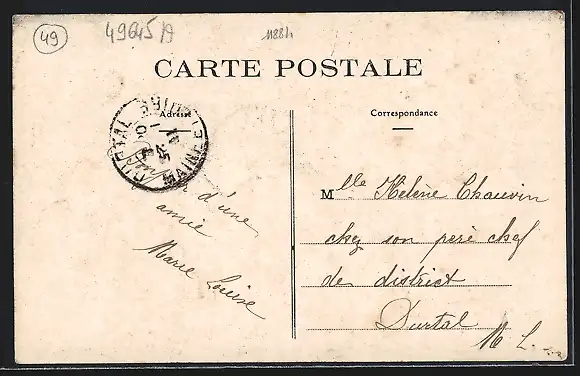 49
49645 A
11884
CARTE POSTALE
Adresse
Correspondance
DURTAL
d'une
amie
Marie Louise
Mlle Helène Chauvin
chez son père chef
de district
Durtal
M L.